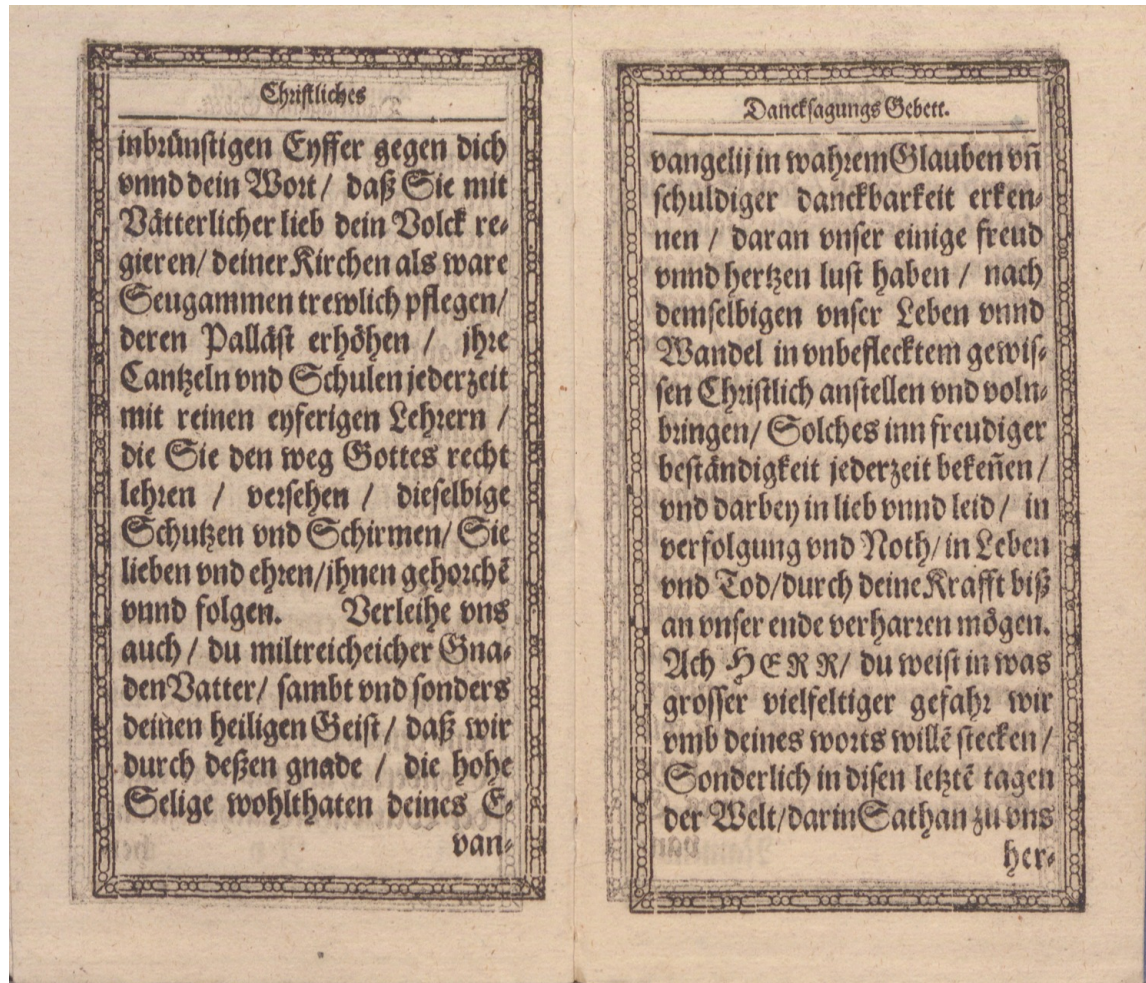 Christliches
inbrünstigen Eyffer gegen dich
vnnd dein Wort/ daß Sie mit
Vätterlicher lieb dein Volck re-
gieren/ deiner Kirchen als ware
Seugammen trewlich pflegen/
deren Palläst erhöhen / jhre
Cantzeln vnd Schulen jederzeit
mit reinen eyferigen Lehrern /
die Sie den weg Gottes recht
lehren / versehen / dieselbige
Schutzen vnd Schirmen/ Sie
lieben vnd ehren/jhnen gehorchē
vnnd folgen. Verleihe vns
auch / du miltreicheicher Gna-
den Vatter/ sambt vnd sonders
deinen heiligen Geist / daß wir
durch deßen gnade / die hohe
Selige wohlthaten deines E-
van-
Dancksagungs Gebett.
vangelij in wahrem Glauben vñ
schuldiger danckbarkeit erken-
nen / daran vnser einige freud
vnnd hertzen lust haben / nach
demselbigen vnser Leben vnnd
Wandel in vnbeflecktem gewis-
sen Christlich anstellen vnd voln-
bringen/ Solches inn freudiger
beständigkeit jederzeit bekeñen /
vnd darbey in lieb vnnd leid / in
verfolgung vnd Noth/ in Leben
vnd Tod/durch deine Krafft biß
an vnser ende verharren mögen.
Ach HERR/ du weist in was
grosser vielfeltiger gefahr wir
vmb deines worts willē stecken /
Sonderlich in disen letztē tagen
der Welt/darin Sathan zu vns
her-